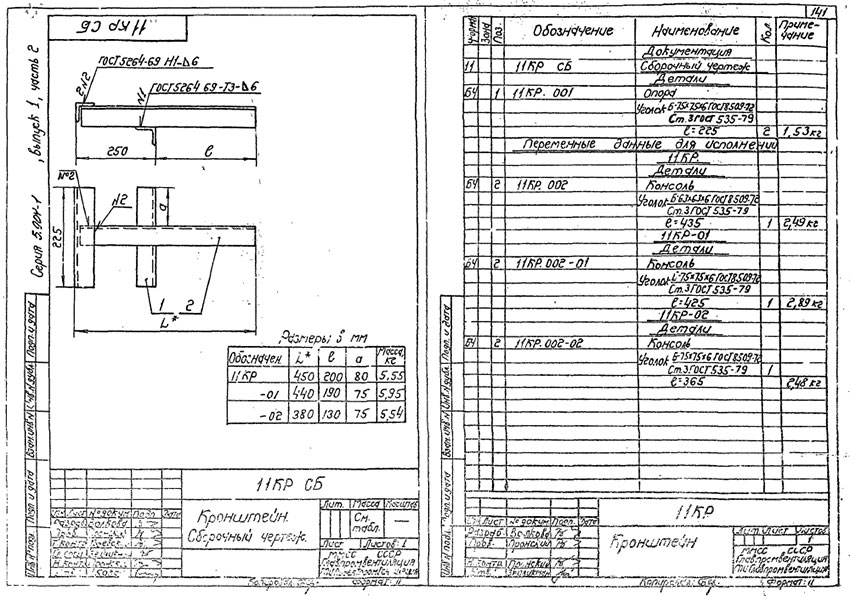 11КР СБ
Серия 5.904-1, выпуск 1, часть 2
ГОСТ 5264-69 Н1-Δ6
ГОСТ 5264-69-Т3-Δ6
№2
№1
250
ℓ
№2
№2
а
225
1 2
L*
Размеры в мм
Обозначен. L* ℓ а Масса, кг
11КР 450 200 80 5,55
-01 440 190 75 5,95
-02 380 130 75 5,54
11КР СБ
Кронштейн.
Сборочный чертеж.
Лит. Масса Масштаб
См. табл. —
Лист Листов 1
ММСС СССР
Главпромвентиляция
Изм. Лист № докум. Подп. Дата
Разраб. Волкова
Пров.
Т.контр.
Н.контр.
Копировал
Формат 11
Подп. и дата
Инв.№ дубл.
Взам.инв.№
Подп. и дата
Инв.№ подл.
141
Форма Зона Поз. Обозначение Наименование Кол. Приме-чание
Документация
11 11КР СБ Сборочный чертеж
Детали
БЧ 1 11КР. 001 Опора
Уголок Б-75×75×6 ГОСТ 8509-72
Ст.3 ГОСТ 535-79
ℓ=225 2 1,53кг
Переменные данные для исполнений
11КР
Детали
БЧ 2 11КР. 002 Консоль
Уголок Б-63×63×6 ГОСТ 8509-72
Ст.3 ГОСТ 535-79
ℓ=435 1 2,49кг
11КР-01
Детали
БЧ 2 11КР.002-01 Консоль
Уголок Б-75×75×6 ГОСТ 8509-72
Ст.3 ГОСТ 535-79
ℓ=425 1 2,89кг
11КР-02
Детали
БЧ 2 11КР.002-02 Консоль
Уголок Б-75×75×6 ГОСТ 8509-72
Ст.3 ГОСТ 535-79 1
ℓ=365 2,48кг
11КР
Кронштейн
Лит. Лист Листов
1
ММСС СССР
Главпромвентиляция
Изм. Лист № докум. Подп. Дата
Разраб. Волкова
Пров. Пронский
Н.контр. Пронский
Утв.
Копировал
Формат 11
Подп. и дата
Инв.№ дубл.
Взам.инв.№
Подп. и дата
Инв.№ подл.